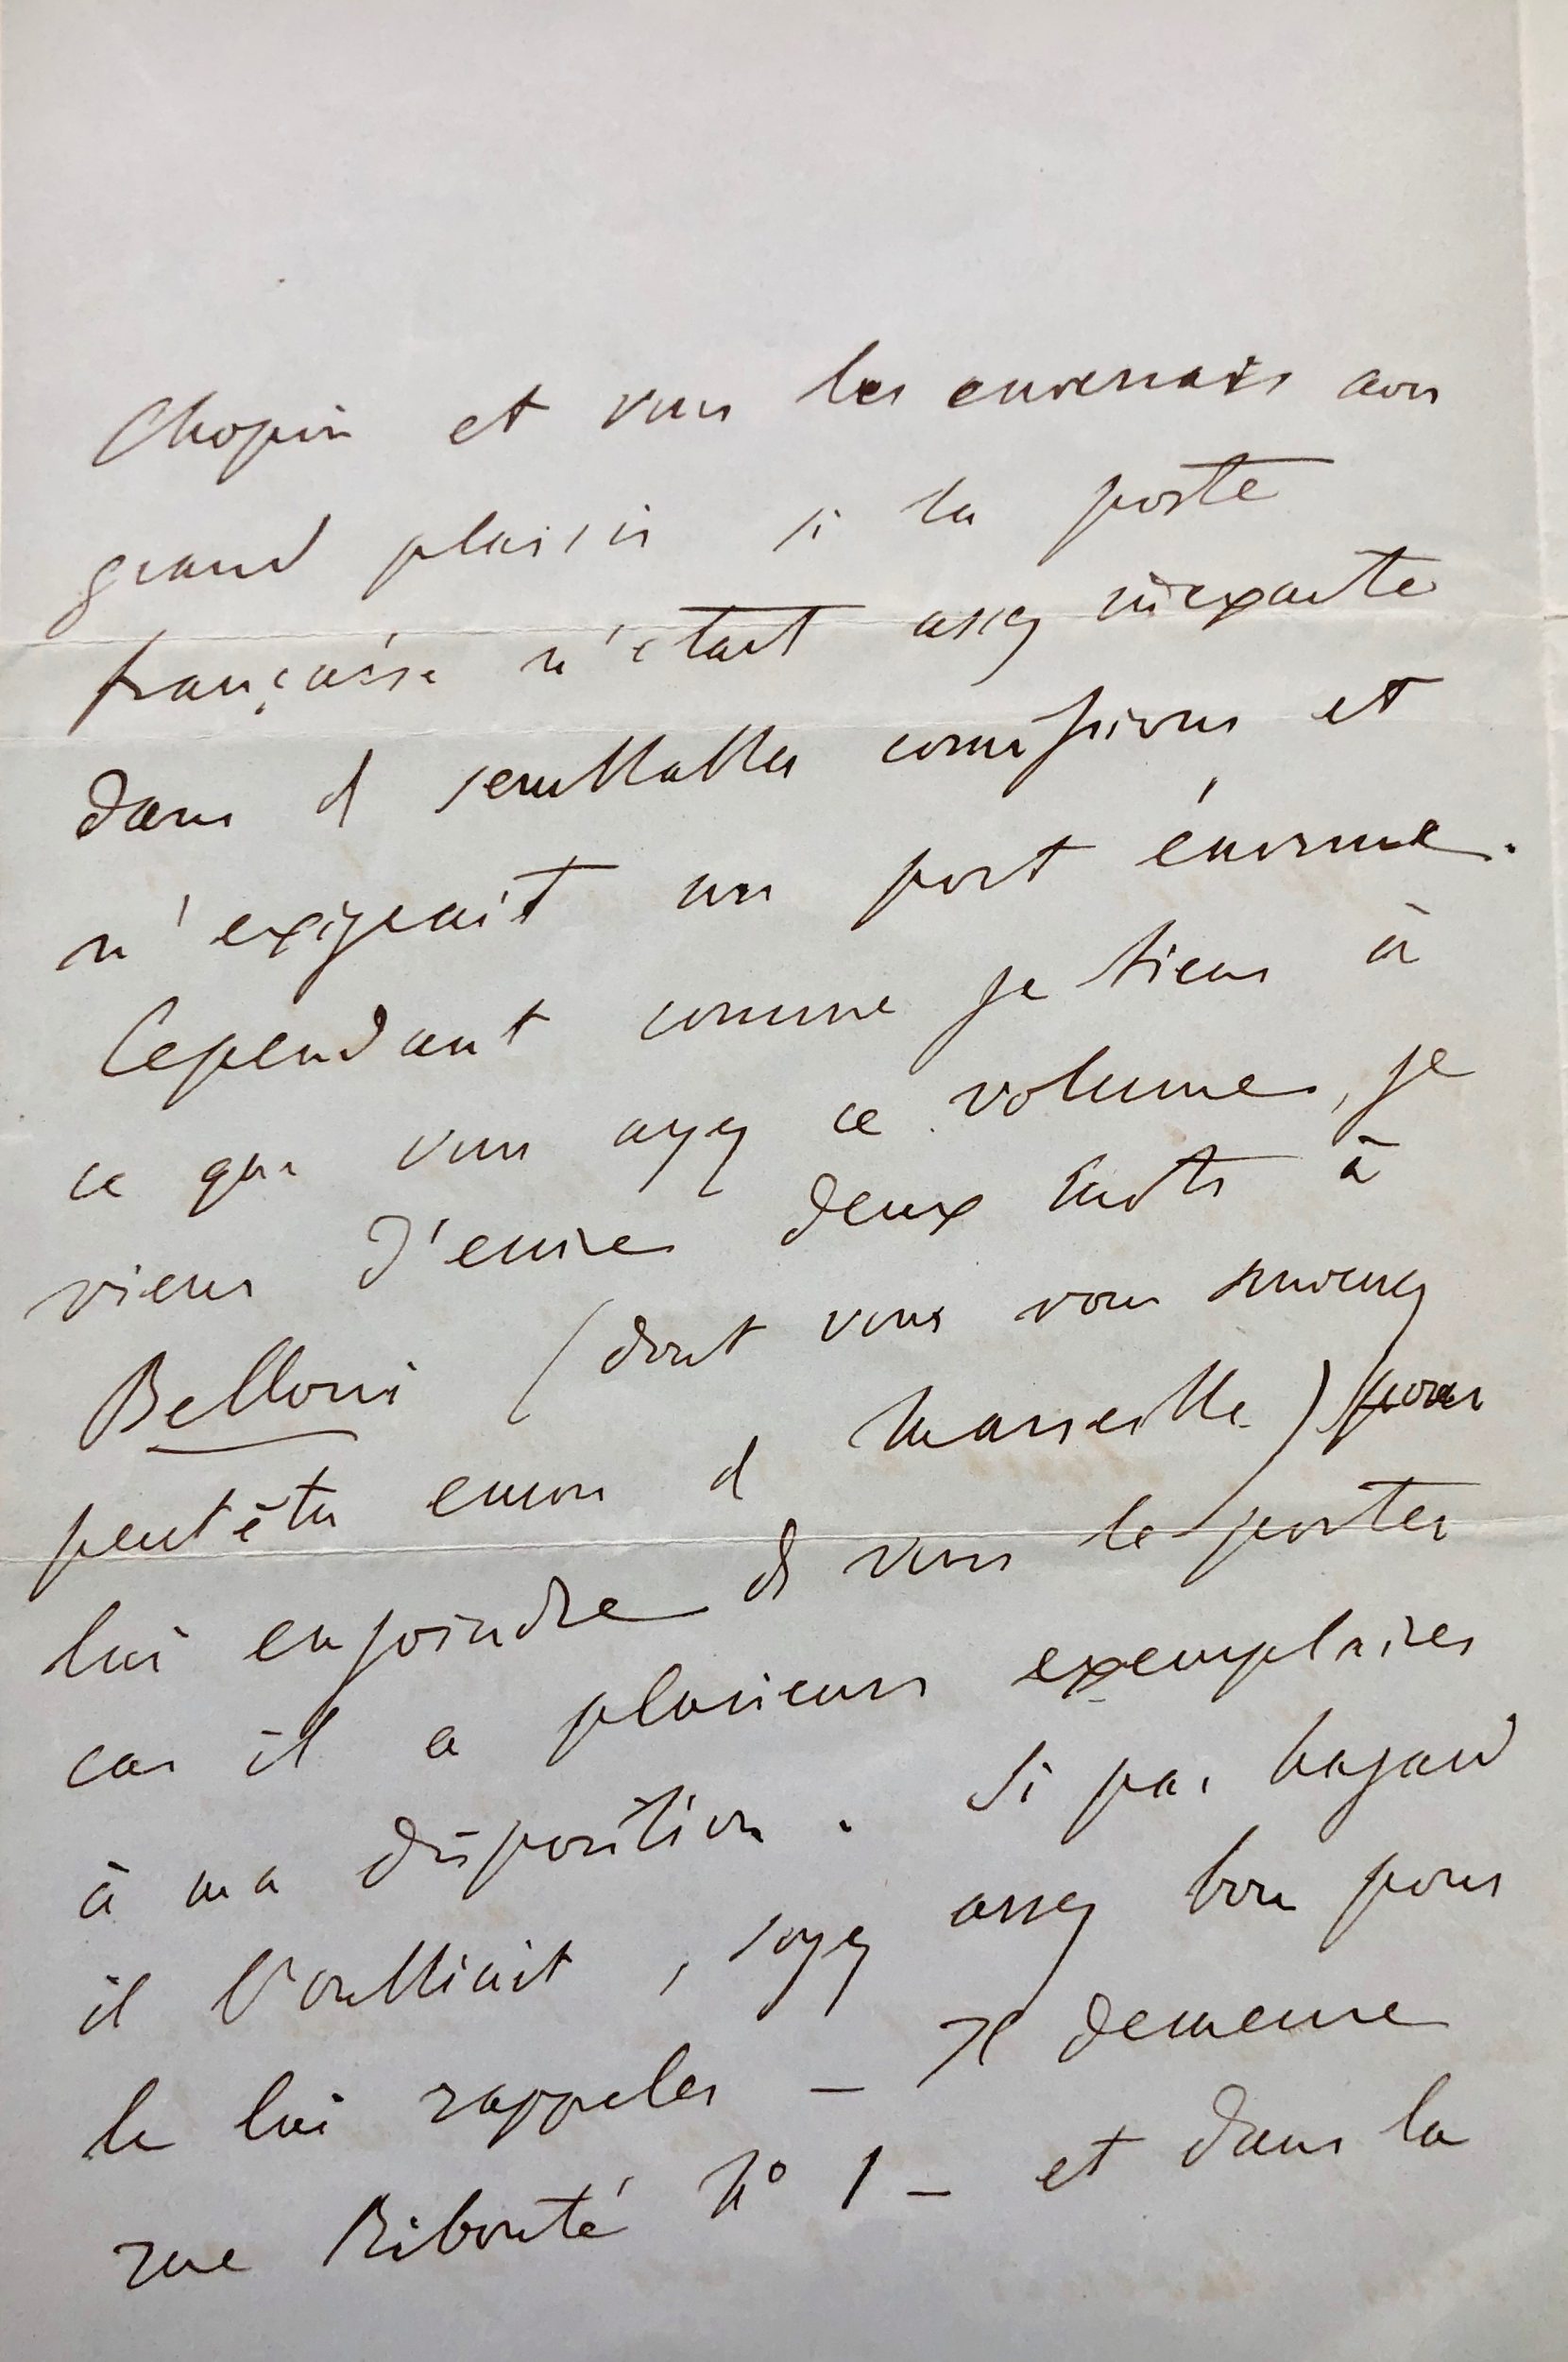 Chopin et vous les enverrais avec
grand plaisir si la poste
française n'était assez inexacte
dans de semblables commissions et
n'exigeait un port énorme.
Cependant comme je tiens à
ce que vous ayez ce volume, je
viens d'écrire deux mots à
Belloni (dont vous vous souvenez
peut être encore de Marseille) pour
lui enjoindre de vous le porter
car il a plusieurs exemplaires
à ma disposition. Si par hazard
il l'oubliait, soyez assez bon pour
le lui rappeler – Il demeure
rue Ribouté No 1 – et dans la